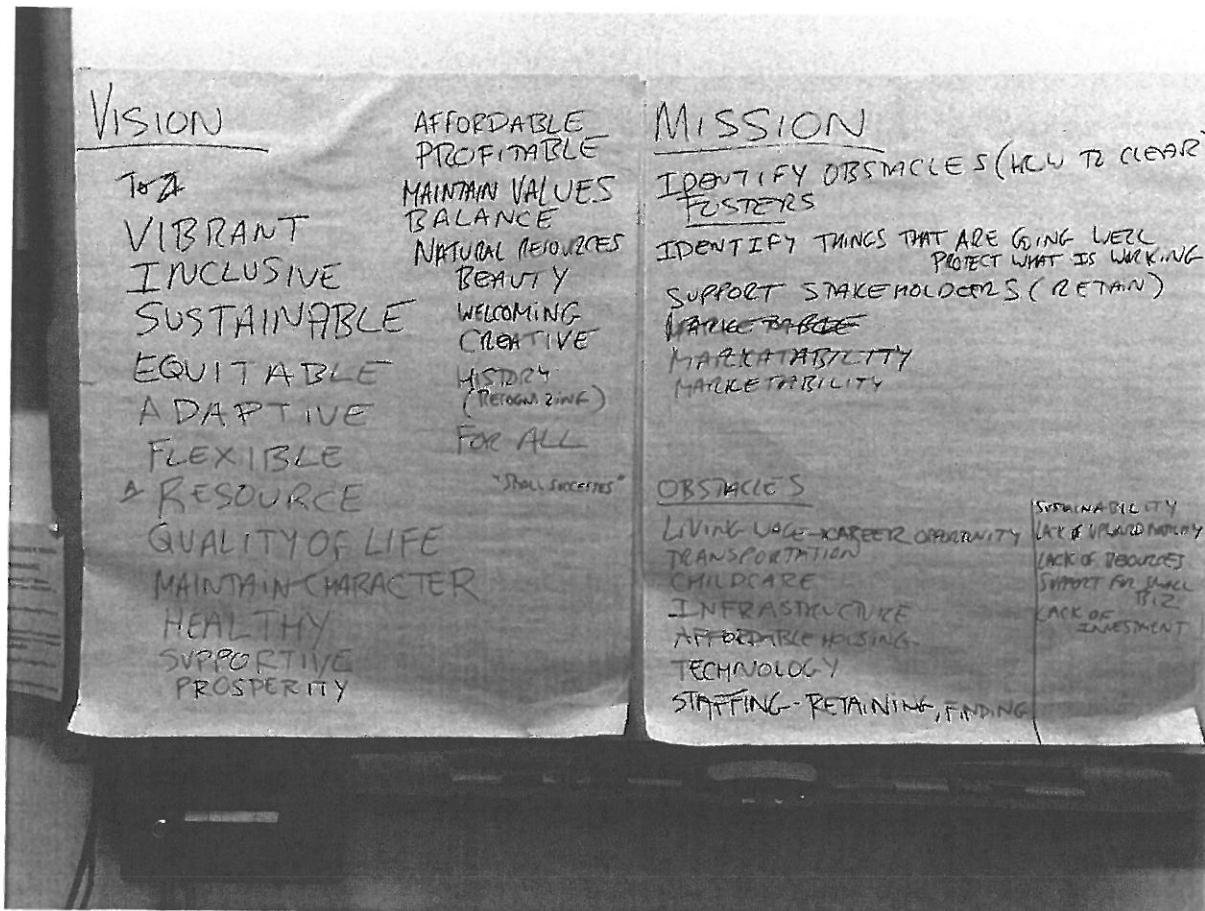 VISION
TO
VIBRANT
INCLUSIVE
SUSTAINABLE
EQUITABLE
ADAPTIVE
FLEXIBLE
A RESOURCE
QUALITY OF LIFE
MAINTAIN CHARACTER
HEALTHY
SUPPORTIVE
PROSPERITY
AFFORDABLE
PROFITABLE
MAINTAIN VALUES
BALANCE
NATURAL RESOURCES
BEAUTY
WELCOMING
CREATIVE
HISTORY
(RECOGNIZING)
FOR ALL
"SMALL SUCCESSES"
MISSION
IDENTIFY OBSTACLES (HOW TO CLEAR)
FOSTERS
IDENTIFY THINGS THAT ARE GOING WELL
PROTECT WHAT IS WORKING
SUPPORT STAKEHOLDERS (RETAIN)
MARKETABLE
MARKATABILITY
MARKETABILITY
OBSTACLES
LIVING WAGE - CAREER OPPORTUNITY
TRANSPORTATION
CHILDCARE
INFRASTRUCTURE
AFFORDABLE HOUSING
TECHNOLOGY
STAFFING - RETAINING, FINDING
SUSTAINABILITY
LACK OF UPWARD MOBILITY
LACK OF RESOURCES
SUPPORT FOR SMALL
BIZ
LACK OF
INVESTMENT